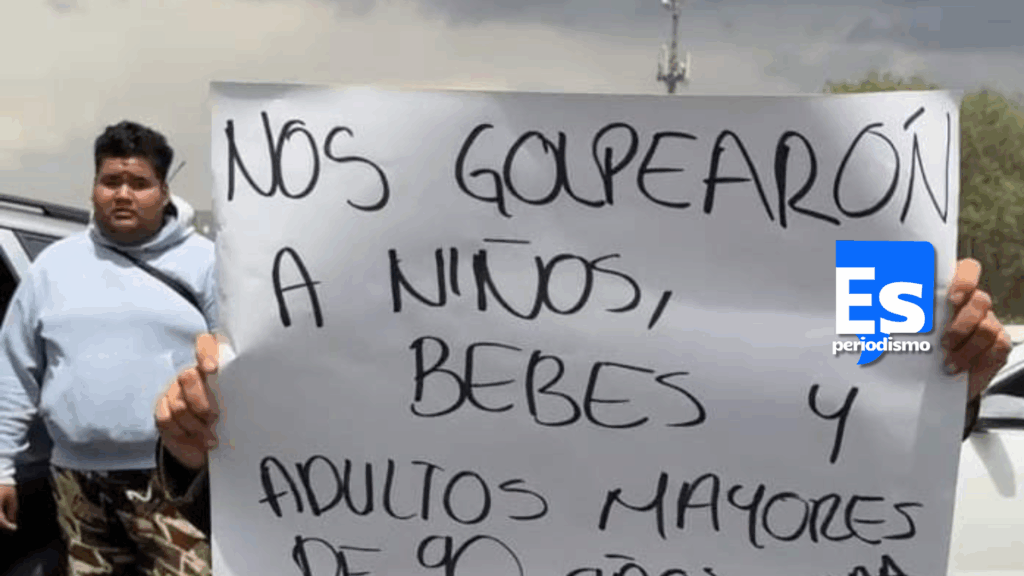 NOS GOLPEARÓN
A NIÑOS,
BEBES Y
ADULTOS MAYORES
DE 90 AÑOS
Es
periodismo